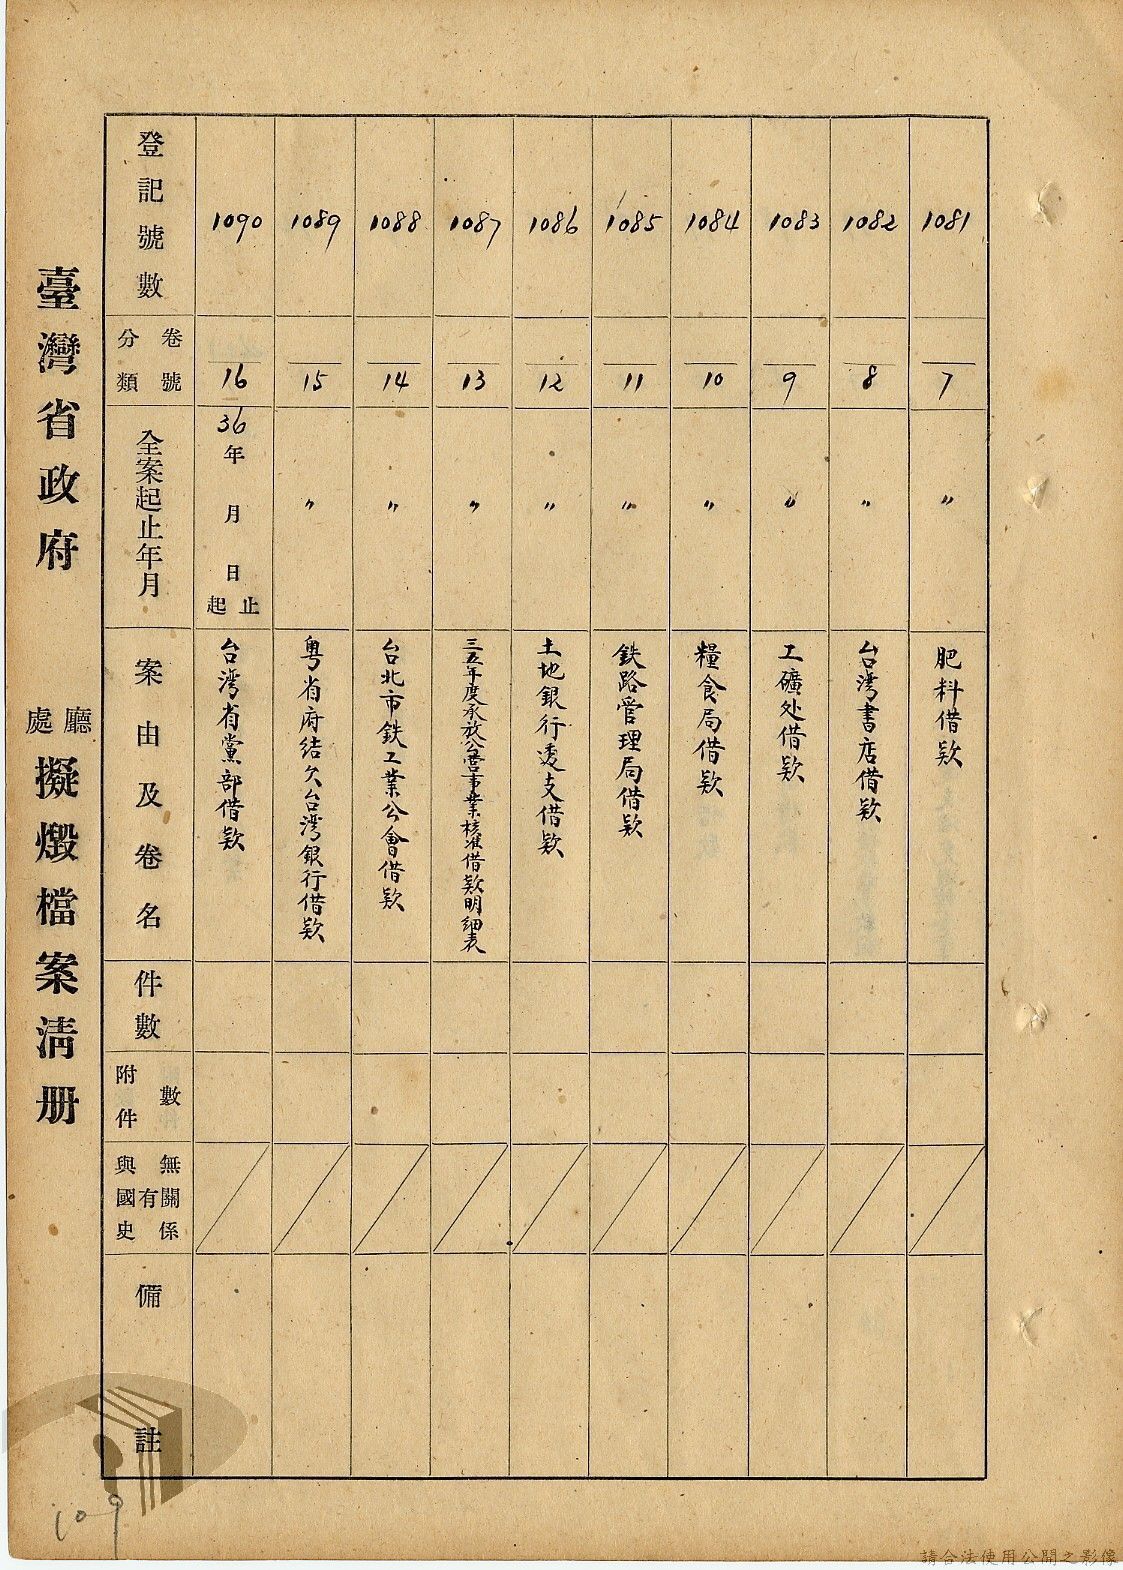 臺灣省政府 廳處 擬燬檔案清册
登記號數
1081
1082
1083
1084
1085
1086
1087
1088
1089
1090
分類 卷號
7
8
9
10
11
12
13
14
15
16
全案起止年月
〃
〃
〃
〃
〃
〃
〃
〃
〃
36年 月 日 起止
案由及卷名
肥料借欵
台湾書店借欵
工礦处借欵
糧食局借欵
鉄路管理局借欵
土地銀行透支借欵
三五年度承放公营事業核准借欵明细表
台北市鉄工業公會借欵
粤省府结欠台湾銀行借欵
台湾省黨部借欵
件數
附件數
與國史有無關係
備註
109
請合法使用公開之影像